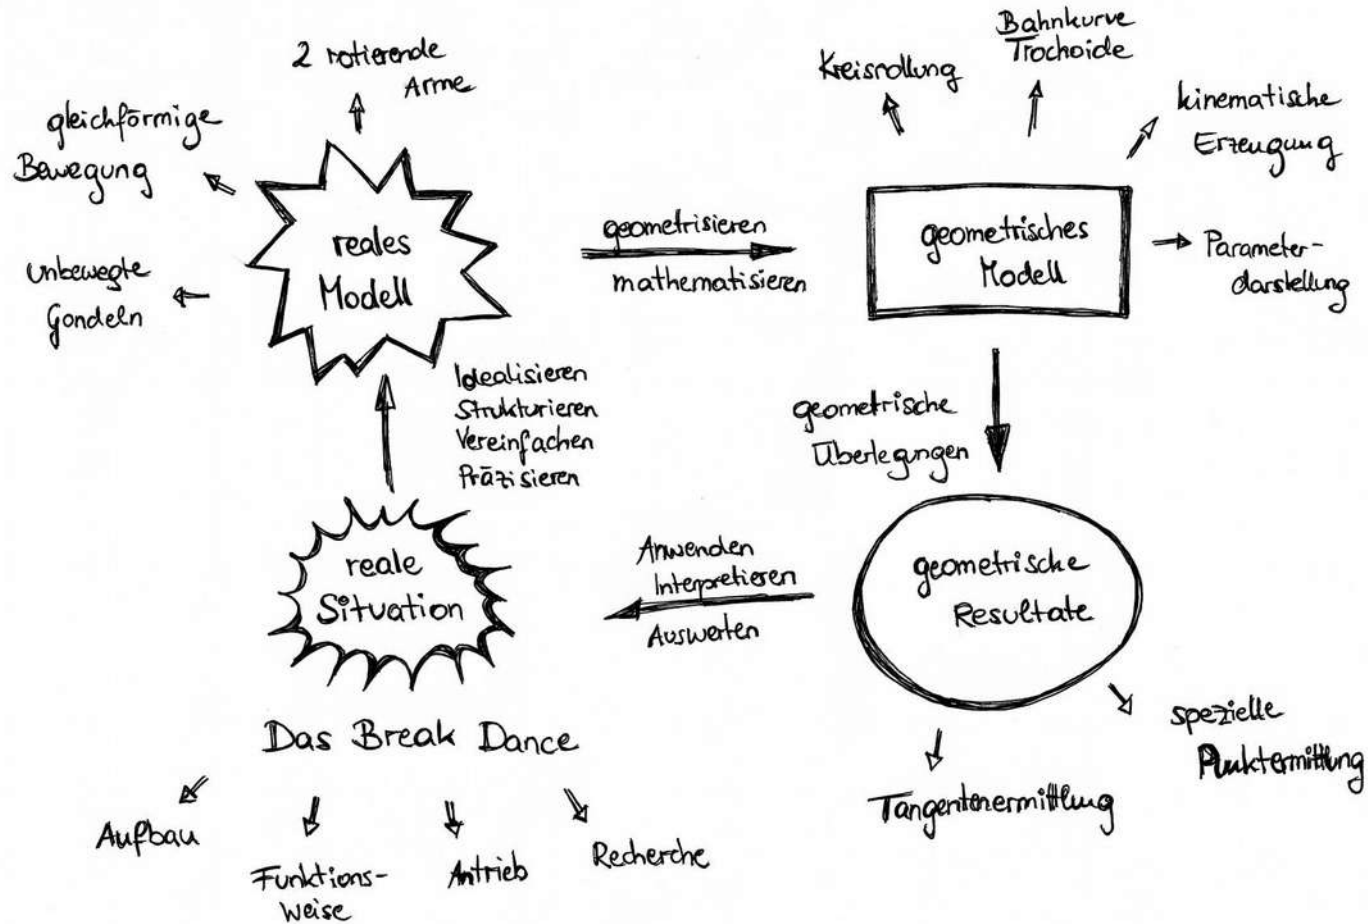 2 rotierende
Arme
gleichförmige
Bewegung
unbewegte
Gondeln
reales
Modell
geometrisieren
mathematisieren
Kreisrollung
Bahnkurve
Trochoide
kinematische
Erzeugung
geometrisches
Modell
Parameter-
darstellung
Idealisieren
Strukturieren
Vereinfachen
Präzisieren
geometrische
Überlegungen
reale
Situation
Anwenden
Interpretieren
Auswerten
geometrische
Resultate
Das Break Dance
Aufbau
Funktions-
weise
Antrieb
Recherche
Tangentenermittlung
spezielle
Punktermittlung